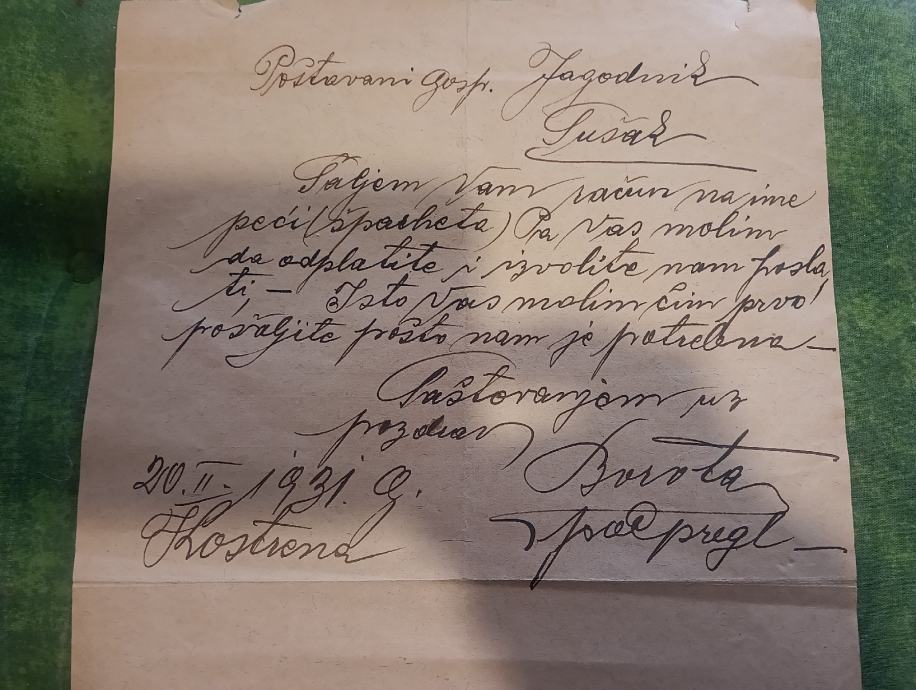 Poštavani Gosp. Jagodnik
Sušak
Šaljem Vam račun na ime
peći (špacheta) Pa Vas molim
da odplatite i izvolite nam posla
ti, — Isto Vas molim čim prvo
pošaljite pošto nam je potrebna —
Saštovanjem uz
pozdrav
Borota
20. II. 1931. G.
Kostrena
podpregl —